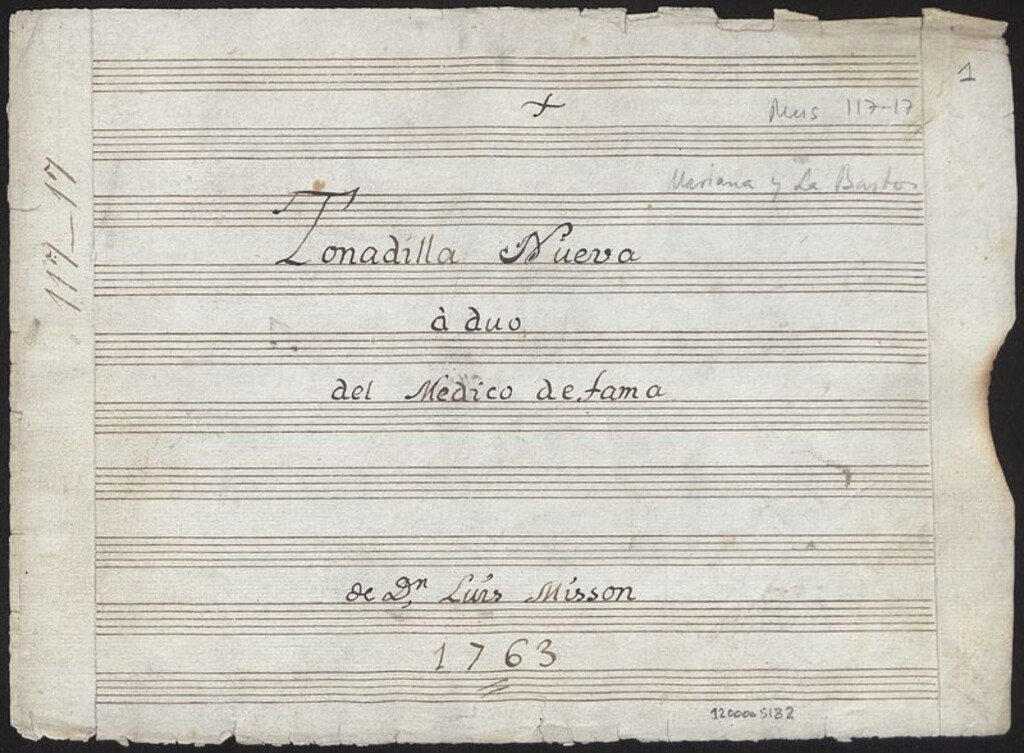 1
Mus 117-17
Mariana y La Bastos
117-17
Tonadilla Nueva
à duo
del Médico de fama
de Dn Luis Misson
1763
1200065132